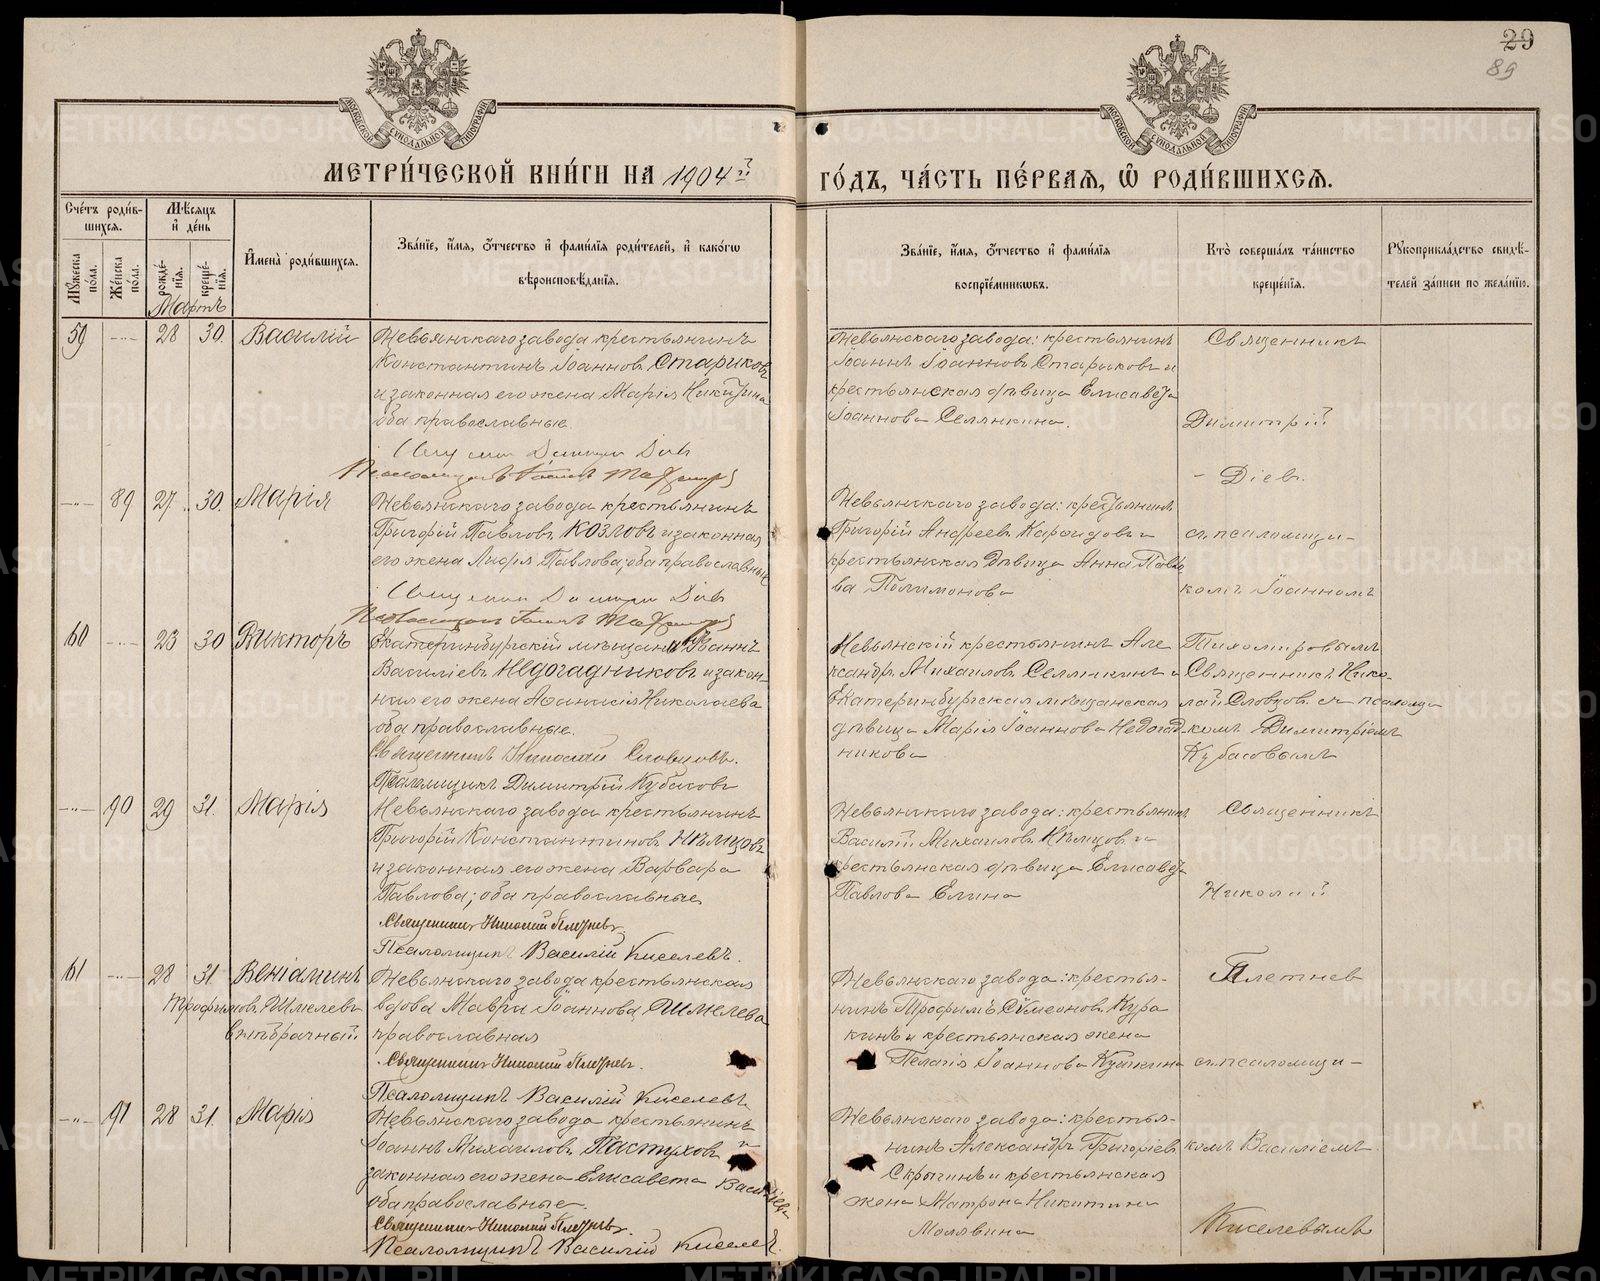 29
89
МОСКОВСКОЙ СѴНОДАЛЬНОЙ ТИПОГРАФІИ
МОСКОВСКОЙ СѴНОДАЛЬНОЙ ТИПОГРАФІИ
МЕТРИ́ЧЕСКОЙ КНИ́ГИ НА 1904й ГО́ДЪ, ЧА́СТЬ ПЕ́РВАЯ, Ѡ РОДИ́ВШИХСЯ.
Сче́тъ роди́в-
шихся.
Мѣ́сяцъ
и҆ де́нь
Мꙋжеска по́ла.
Же́нска по́ла.
рожде́-
нія.
креще́-
нія.
И҆мена̀ роди́вшихся.
Зва́ніе, и҆́мя, ѻ҆́тчество и҆ фами́лія роди́телей, и҆ како́гѡ
вѣроисповѣ́данія.
Зва́ніе, и҆́мя, ѻ҆́тчество и҆ фами́лія
воспріе́мникѡвъ.
Кто̀ соверша́лъ та́инство
креще́нія.
Рꙋкоприкла́дство свидѣ́-
телей за́писи по жела́нію.
Мартъ
59 28 30. Василій
Невьянскаго завода крестьянинъ
Константинъ Іоанновъ Стариковъ
и законная его жена Марія Никитина
оба православные.
Невьянскаго завода: крестьянинъ
Іоаннъ Іоанновъ Стариковъ и
крестьянская дѣвица Елисавета
Іоаннова Селянкина.
Священникъ
Димитрій
Діевъ.
89 27 30. Марія
Невьянскаго завода крестьянинъ
Григорій Павловъ Козловъ и законная
его жена Марія Павлова; оба православные
Невьянскаго завода: крестьянинъ
Григорій Андреевъ и
крестьянская дѣвица Анна Павло
ва
съ псаломщи-
комъ Іоанномъ
Тихомировымъ
60 23 30 Викторъ
Екатеринбургскій мѣщанинъ Іоаннъ
Василіевъ Недогадниковъ и закон-
ная его жена Николаева
оба православные.
Священникъ Николай Словцовъ.
Псаломщикъ Димитрій Кубасовъ
Невьянскій крестьянинъ Але
ксандръ Михаиловъ Селянкинъ и
Екатеринбургская мѣщанская
дѣвица Марія Іоаннова Недогад
никова
Священникъ Нико-
лай Словцовъ съ псаломщи
комъ Димитріемъ
Кубасовымъ
90 29 31. Марія
Невьянскаго завода крестьянинъ
Григорій Константиновъ Нѣмцовъ
и законная его жена Варвара
Павлова; оба православные
Священникъ Николай Плетневъ
Псаломщикъ Василій Киселевъ.
Невьянскаго завода: крестьянинъ
Василій Михаиловъ Нѣмцовъ и
крестьянская дѣвица Елисавета
Павлова Елина
Священникъ
Николай
Плетнев
61 28 31 Веніаминъ
Трофимовъ Шмелевъ
внѣбрачный
Невьянскаго завода крестьянская
вдова Мавра Іоаннова Шмелева
православная
Священникъ Николай Плетневъ.
Псаломщикъ Василій Киселевъ.
Невьянскаго завода: крестья-
нинъ Трофимъ Сѵмеоновъ Кура
кинъ и крестьянская жена
Пелагія Іоаннова
съ псаломщи-
91 28 31. Марія
Невьянскаго завода крестьянинъ
Іоаннъ Михаиловъ Пастуховъ и
законная его жена Елисавета Василіева
оба православные.
Священникъ Николай Плетневъ.
Псаломщикъ Василій Киселевъ.
Невьянскаго завода: крестья-
нинъ Александръ Григоріевъ
Скрыпинъ и крестьянская
жена Матрона Никитина
Молявина
комъ Василіемъ
Киселевымъ
METRIKI.GASO-URAL.RU